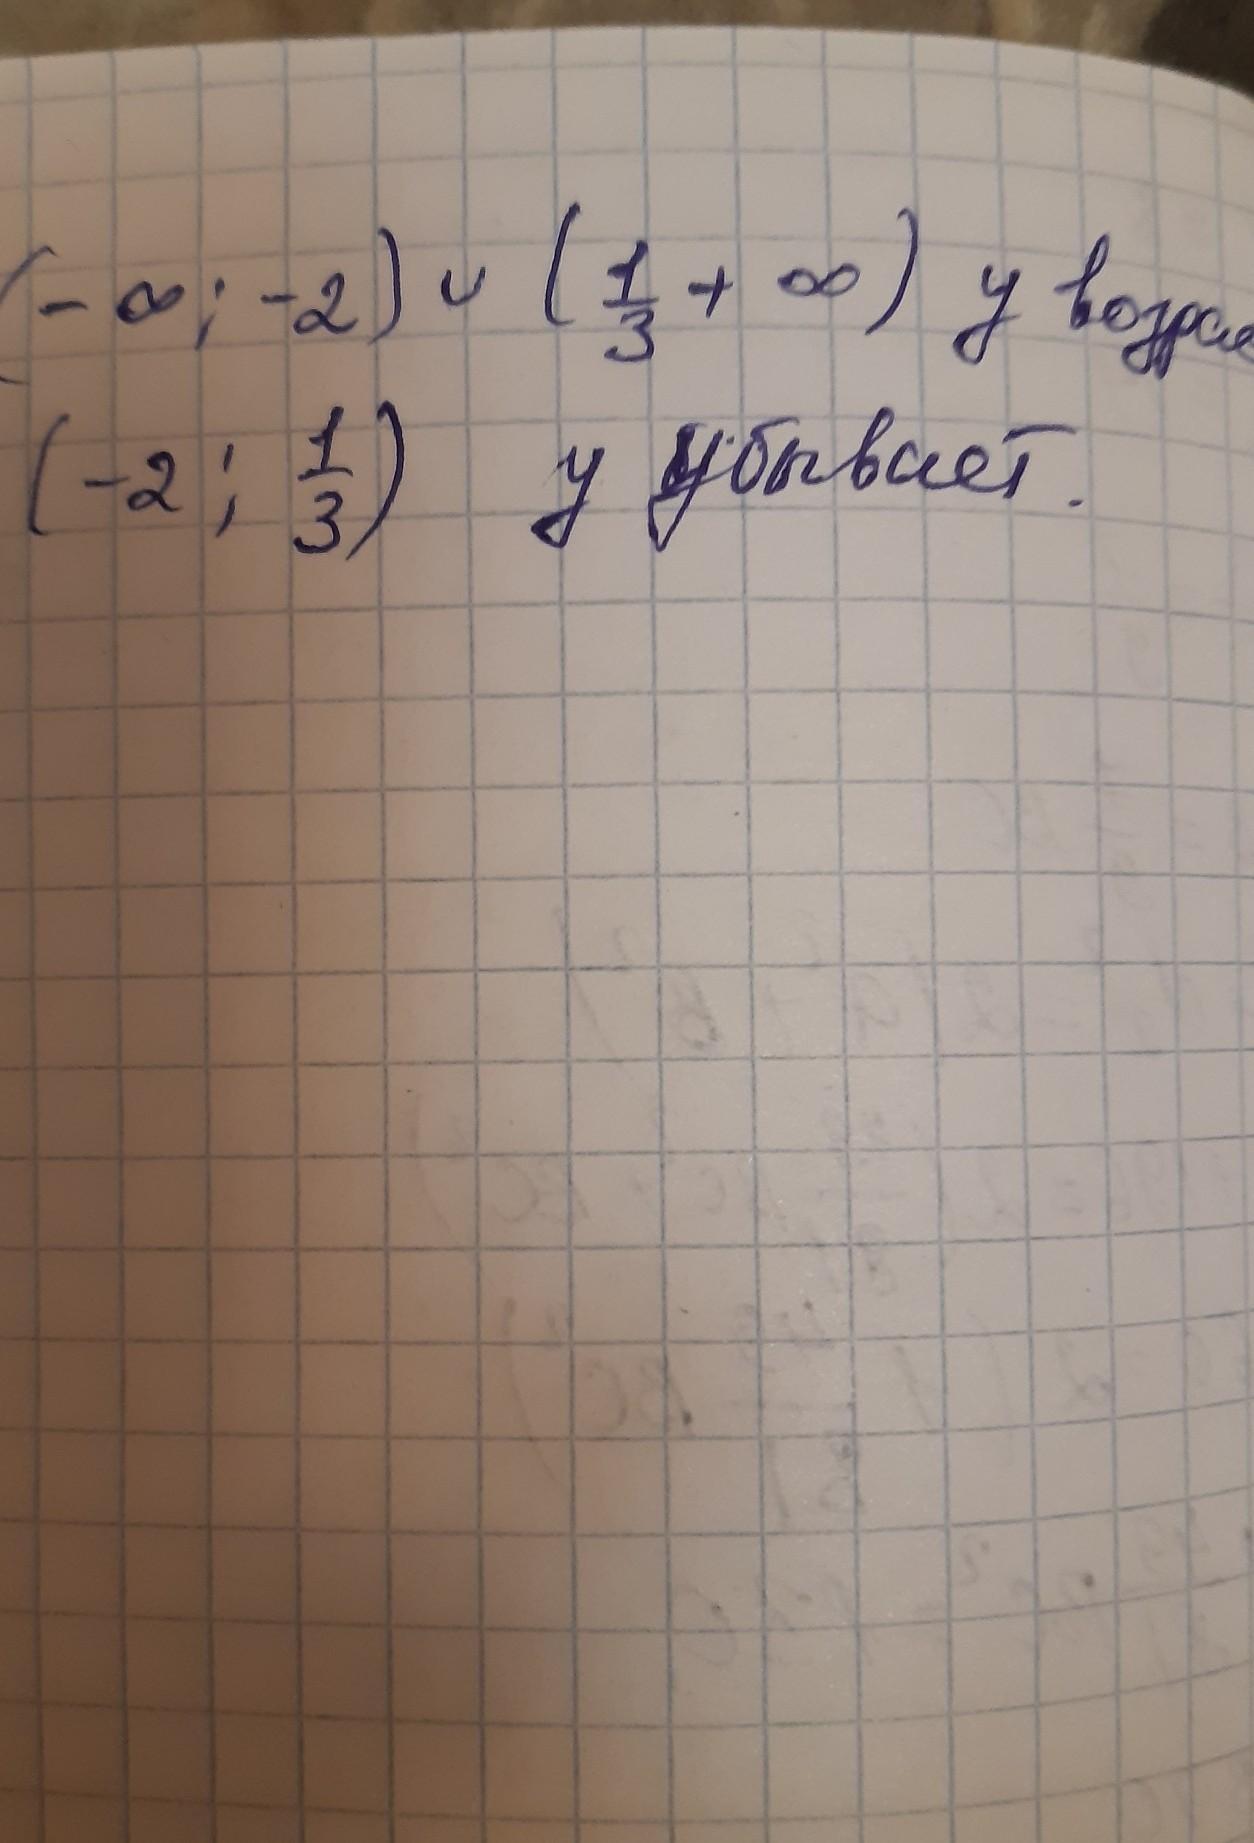 (-∞; -2) ∪ (1/3 + ∞) у возрас
(-2; 1/3) у убывает.